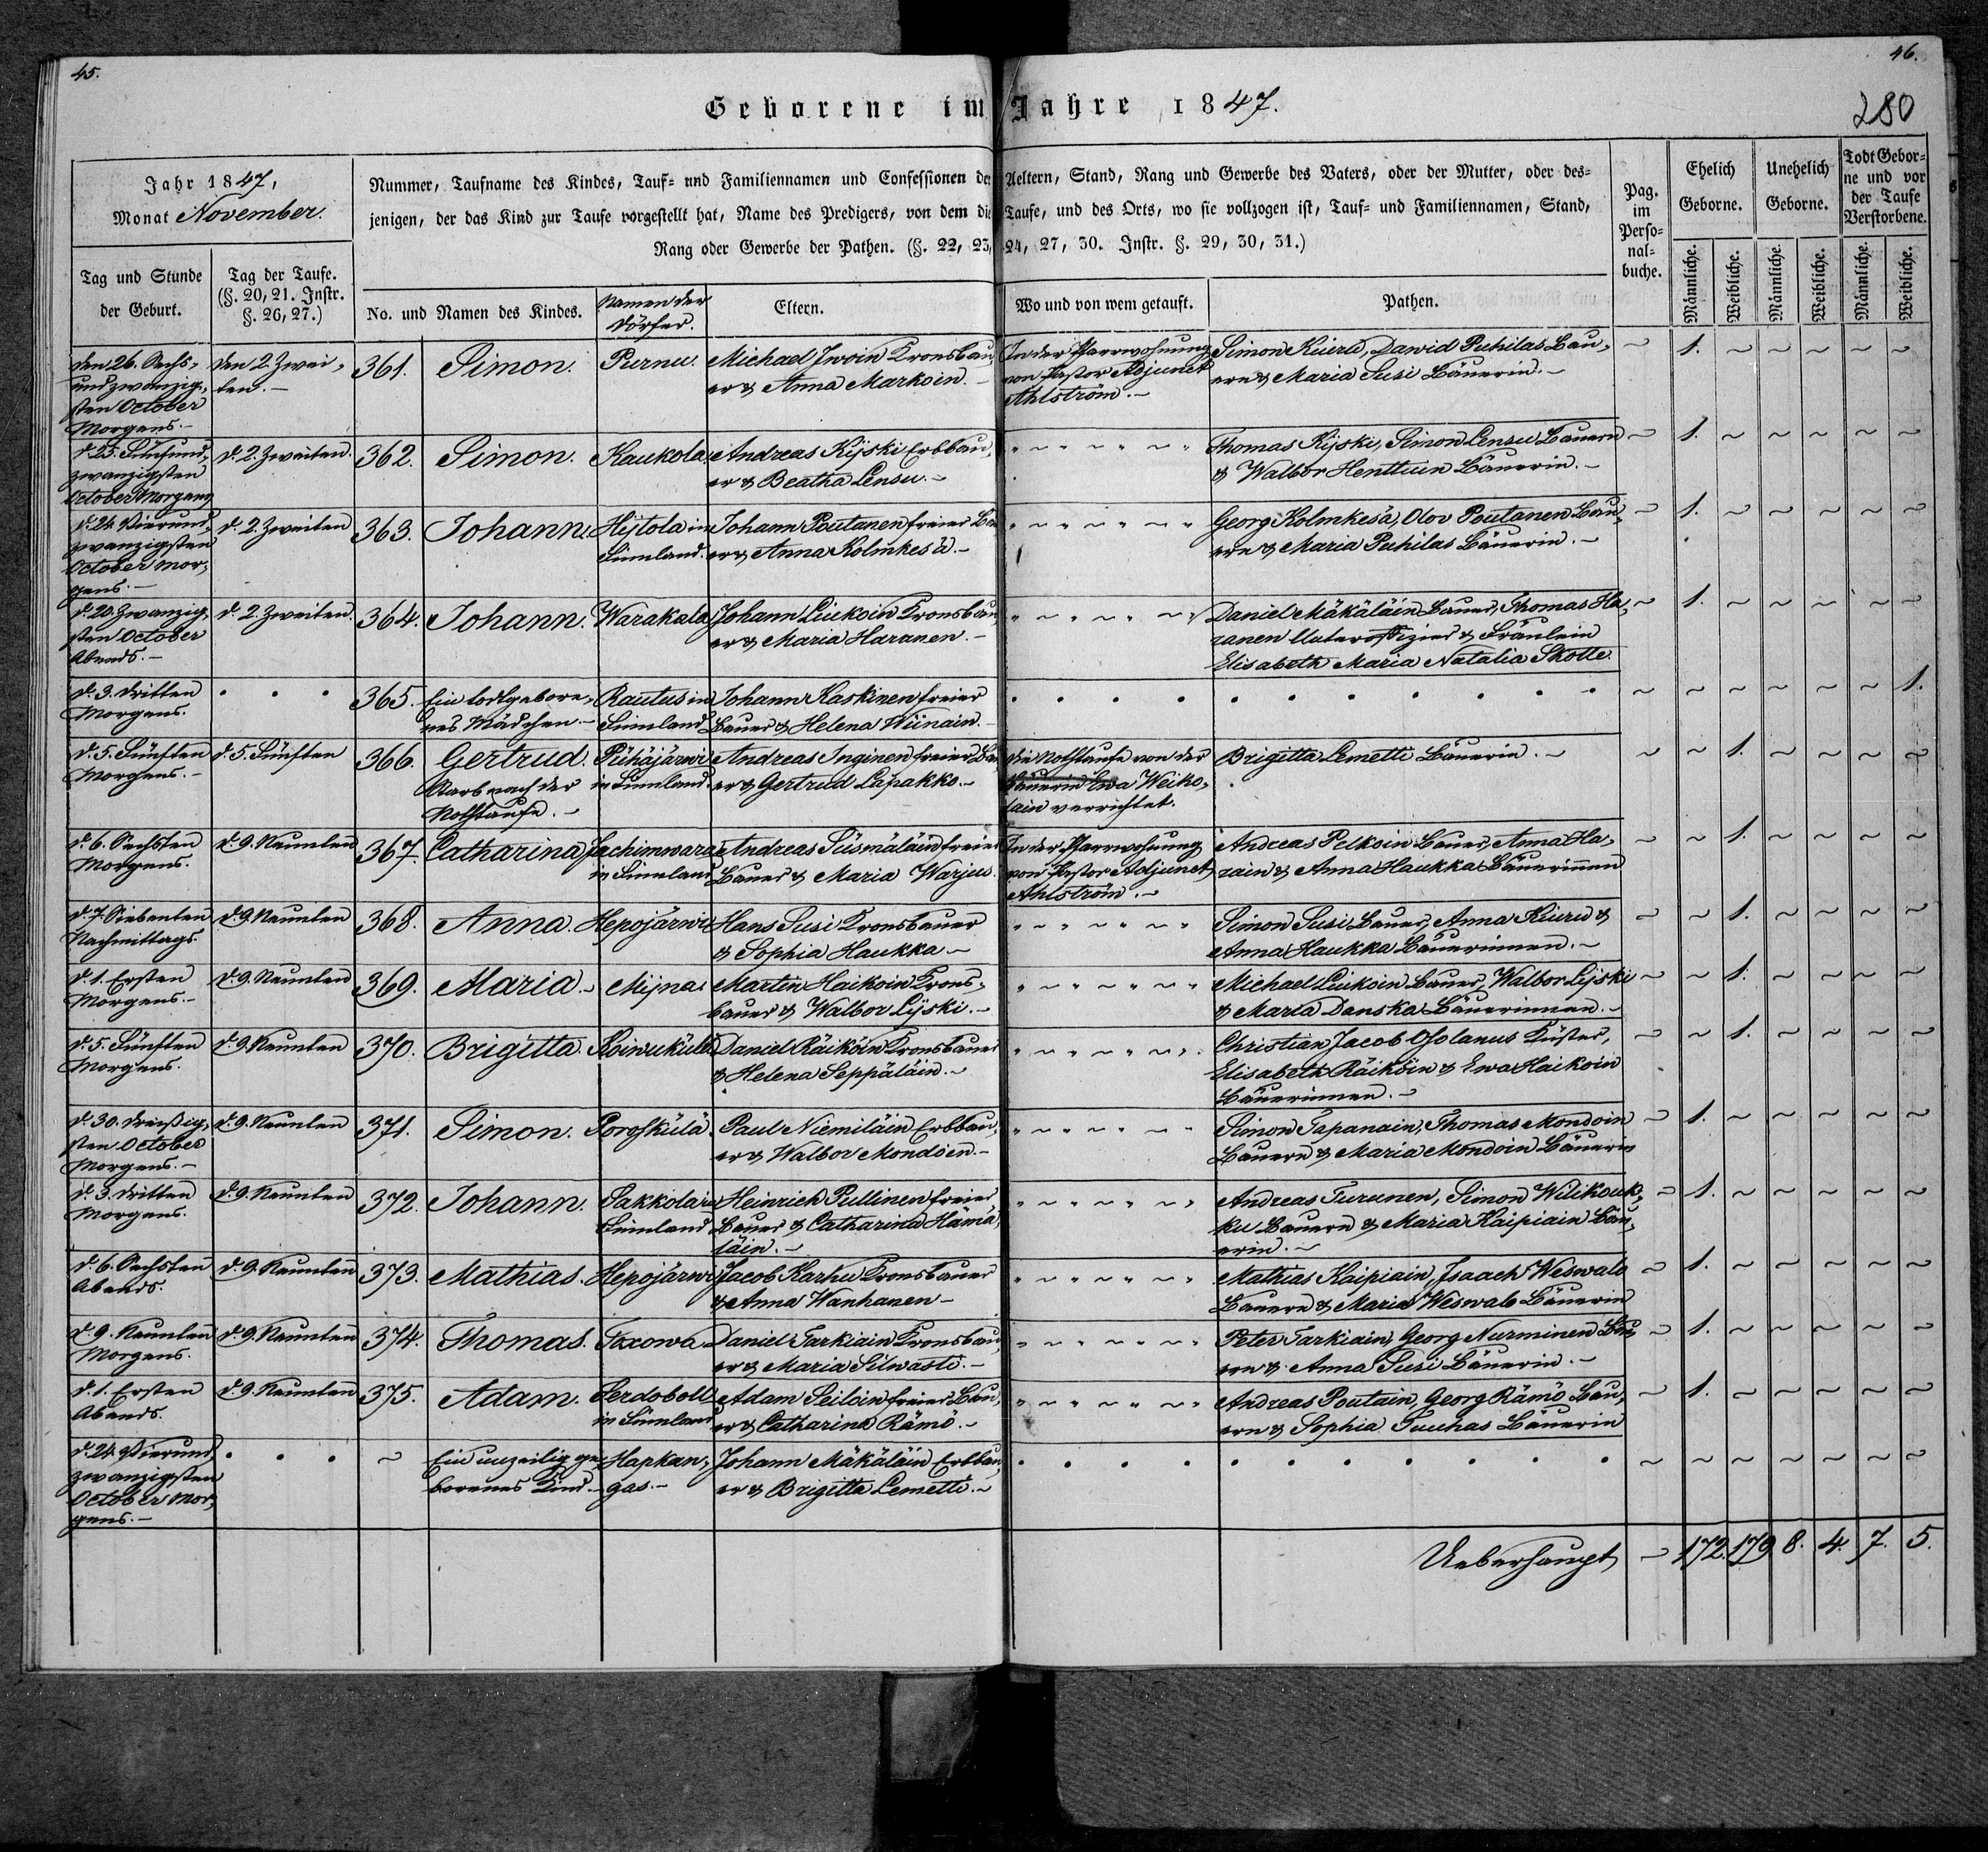 45.
46.
280
Geborene im Jahre 1847.
Jahr 1847,
Monat November.
Nummer, Taufname des Kindes, Tauf- und Familiennamen und Confessionen der Aeltern, Stand, Rang und Gewerbe des Vaters, oder der Mutter, oder des-
jenigen, der das Kind zur Taufe vorgestellt hat, Name des Predigers, von dem die Taufe, und des Orts, wo sie vollzogen ist, Tauf- und Familiennamen, Stand,
Rang oder Gewerbe der Pathen. (§. 22, 23, 24, 27, 30. Instr. §. 29, 30, 31.)
Pag.
im
Perso-
nal-
buche.
Ehelich
Geborne.
Unehelich
Geborne.
Todt Gebor-
ne und vor
der Taufe
Verstorbene.
Tag und Stunde
der Geburt.
Tag der Taufe.
(§. 20, 21. Instr.
§. 26, 27.)
No. und Namen des Kindes.
Namen der
Dörfer.
Eltern.
Wo und von wem getauft.
Pathen.
Männliche.
Weibliche.
Männliche.
Weibliche.
Männliche.
Weibliche.
den 26. Sechs-
undzwanzig-
sten October
Morgens.-
den 2. Zwei-
ten.-
361. Simon.
Purnu.
Michael Iwoin Kronsbau-
er & Anna Markoin.-
In der Pfarrwohnung
von Pastor Adjunct
Ahlström.-
Simon Kiuru, Dawid Puhilas Bau-
ern & Maria Susi Bäuerin.-
~ 1. ~ ~ ~ ~ ~
d. 25. Fünfund-
zwanzigsten
October Morgens
d. 2. Zweiten.
362. Simon.
Kaukola.
Andreas Kijski Erbbau-
er & Beatha Lensu.-
Thomas Kijski, Simon Lensu Bauern
& Walbor Henttuin Bäuerin.-
~ 1. ~ ~ ~ ~ ~
d. 24. Vierund-
zwanzigsten
October Mor-
gens.-
d. 2. Zweiten
363. Johann.
Hijtola in
Finnland.
Johann Poutanen freier Bau
er & Anna Kolmkesä.-
Georg Kolmkesä, Olov Poutanen Bau-
ern & Maria Puhilas Bäuerin.-
~ 1. ~ ~ ~ ~ ~
d. 20. Zwanzig-
sten October
Abends.-
d. 2. Zweiten.
364. Johann.
Warakala
Johann Liukoin Kronsbau
er & Maria Haranen.-
Daniel Mäkäläin Bauer, Thomas Ha-
ranen Unteroffizier & Fräulein
Elisabeth Maria Natalia Skotte.
~ 1. ~ ~ ~ ~ ~
d. 3. Dritten
Morgens.
365. Ein todtgebore-
nes Mädchen.-
Rautus in
Finnland
Johann Kaskinen freier
Bauer & Helena Wiinain.-
~ ~ ~ ~ ~ ~ 1.
d. 5. Fünften
Morgens.-
d. 5. Fünften
366. Gertrud.
Starb nach der
Nothtaufe.-
Pühäjärwi
in Finnland.
Andreas Inginen freier Bau
er & Gertrud Läpakko.-
Die Nothtaufe von der
Bäuerin Ewa Weiko-
lain verrichtet.
Brigitta Lemetti Bäuerin.-
~ ~ 1. ~ ~ ~ ~
d. 6. Sechsten
Morgens.
d. 9. Neunten
367. Catharina
Jachimwara
in Finnland
Andreas Süsmäläin freier
Bauer & Maria Warjus.
In der Pfarrwohnung
von Pastor Adjunct
Ahlström.-
Andreas Pelkoin Bauer, Anna Ha-
rain & Anna Haukka Bäuerinnen
~ ~ 1. ~ ~ ~ ~
d. 7. Siebenten
Nachmittags.
d. 9. Neunten
368. Anna.
Hepojärwi
Hans Susi Kronsbauer
& Sophia Haukka.-
Simon Susi Bauer, Anna Kiuru &
Anna Haukka Bäuerinnen.-
~ ~ 1. ~ ~ ~ ~
d. 1. Ersten
Morgens.-
d. 9. Neunten
369. Maria.-
Mijna.
Martin Haikoin Krons-
bauer & Walbor Lijski.-
Michael Liukoin Bauer, Walbor Lijski
& Maria Danska Bäuerinnen.-
~ ~ 1. ~ ~ ~ ~
d. 5. Fünften
Morgens.
d. 9. Neunten
370. Brigitta.
Koiwukülä
Daniel Räiköin Kronsbauer
& Helena Seppäläin.-
Christian Jacob Osolanus Küster,
Elisabeth Räiköin & Ewa Haikoin
Bäuerinnen.-
~ ~ 1. ~ ~ ~ ~
d. 30. Dreißig-
sten October
Morgens.-
d. 9. Neunten
371. Simon.
Poroskülä.
Paul Niemiläin Erbbau-
er & Walbor Mondoin.-
Simon Tapanain, Thomas Mondoin
Bauern & Maria Mondoin Bäuerin
~ 1. ~ ~ ~ ~ ~
d. 3. Dritten
Morgens.
d. 9. Neunten
372. Johann.
Sakkola in
Finnland
Heinrich Pullinen freier
Bauer & Catharina Hämä-
läin.-
Andreas Turunen, Simon Wilikouk-
ku Bauern & Maria Kaipiain Bäu-
erin.-
~ 1. ~ ~ ~ ~ ~
d. 6. Sechsten
Abends.
d. 9. Neunten
373. Mathias.
Hepojärwi
Jacob Karhu Kronsbauer
& Anna Wanhanen.-
Mathias Kaipiain, Isaach Weswalo
Bauern & Maria Weswalo Bäuerin
~ 1. ~ ~ ~ ~ ~
d. 9. Neunten
Morgens.
d. 9. Neunten
374. Thomas.
Toxowa
Daniel Tarkiain Kronsbau-
er & Maria Silwasti.-
Peter Tarkiain, Georg Nurminen Bau-
ern & Anna Susi Bäuerin.-
~ 1. ~ ~ ~ ~ ~
d. 1. Ersten
Abends.
d. 9. Neunten
375. Adam.
Serdoboll
in Finnland
Adam Seiloin freier Bau-
er & Catharina Rämö.-
Andreas Poutain, Georg Rämö Bau-
ern & Sophia Suuhas Bäuerin
~ 1. ~ ~ ~ ~ ~
d. 24. Vierund-
zwanzigsten
October Mor-
gens.-
~ Ein unzeitig ge-
borenes Kind.-
Hapkan-
gas.-
Johann Mäkäläin Erbbau-
er & Brigitta Lemetti.-
~ ~ ~ ~ ~ ~ ~
Ueberhaupt ~ 172. 179 8. 4. 7. 5.